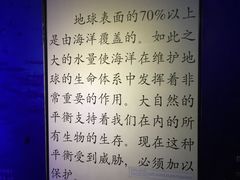 地球表面的70%以上
是由海洋覆盖的。如此之
大的水量使海洋在维护地
球的生命体系中发挥着非
常重要的作用。大自然的
平衡支持着我们在内的所
有生物的生存。现在这种
平衡受到威胁，必须加以
保护。